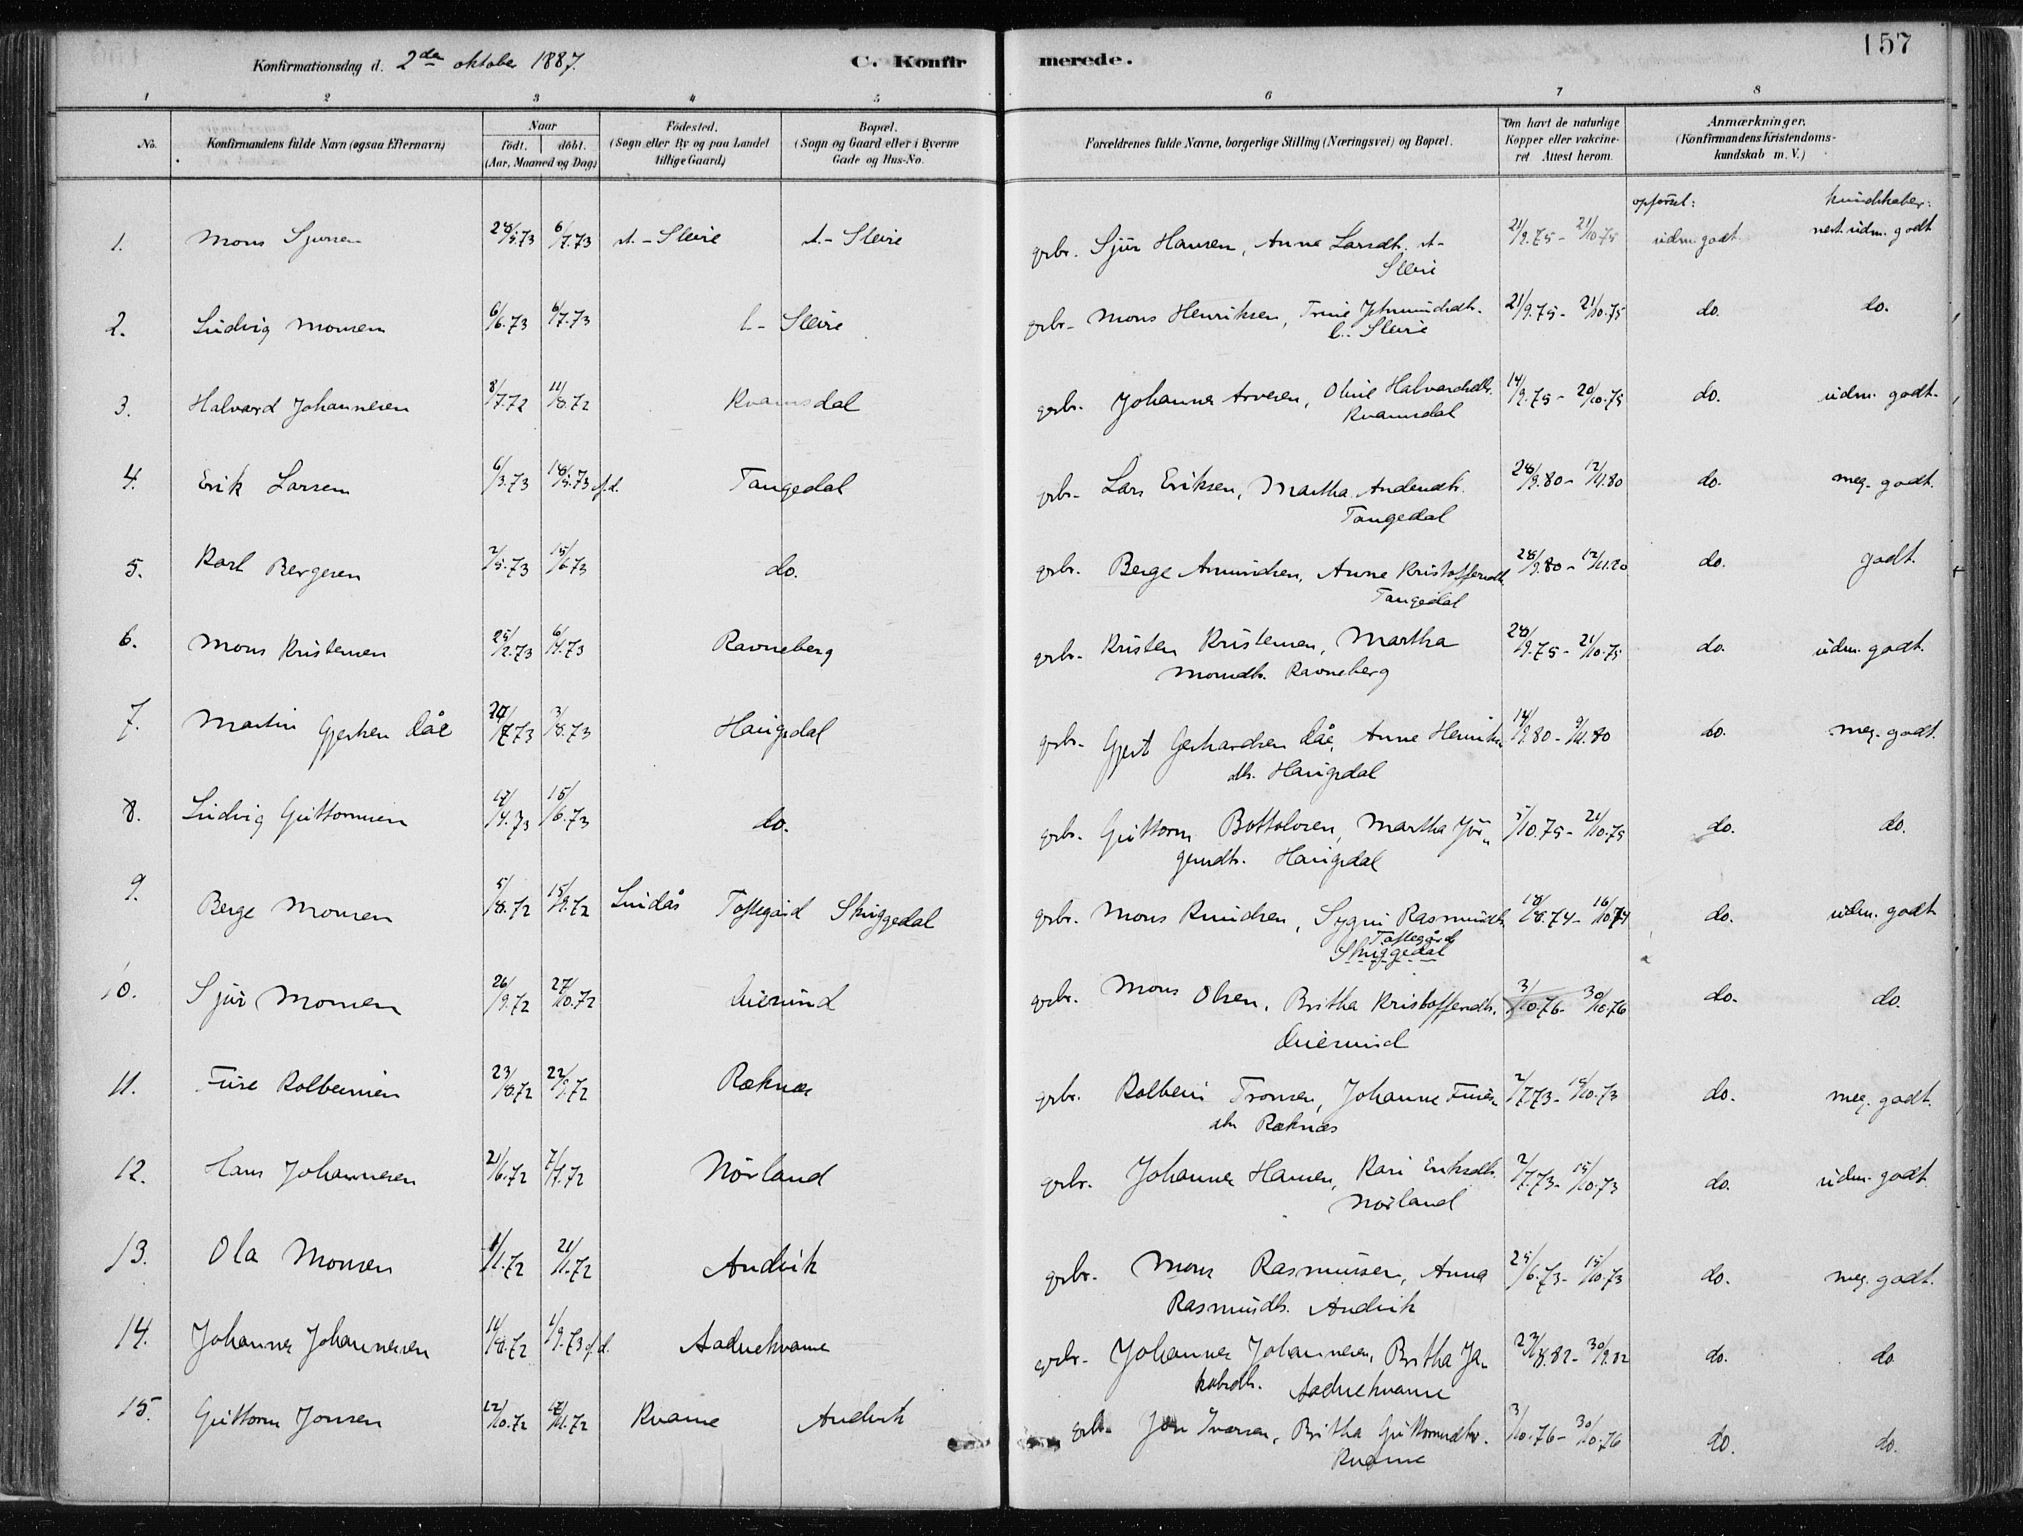 157
Konfirmationsdag d. 2den oktober 1887.
C. Konfirmerede.
1 2 3 4 5 6 7 8
No. Konfirmandens fulde Navn (ogsaa Efternavn) Naar født. døbt. (Aar, Maaned og Dag) Fødested. (Sogn eller By og paa Landet tillige Gaard) Bopæl. (Sogn og Gaard eller i Byerne Gade og Hus-No. Forældrenes fulde Navne, borgerlige Stilling (Næringsvei) og Bopæl. Om havt de naturlige Kopper eller vakcineret Attest herom. Anmærkninger. (Konfirmandens Kristendomskundskab m. V.)
opførsel: kundskaber:
1. Mons Sjursen 28/5.73 6/7.73 A.-Sleire A.-Sleire grbr. Sjur Hansen, Anne Larsdtr. A- 21/9.75 - 21/10.75 udm. godt. nest. udm. godt
Sleire
2. Ludvig Monsen 6/6.73 6/7.73 l.-Sleire grbr. Mons Henriksen, Trine Jetmundsdtr. 21/9.75 - 21/10.75 do. do.
l.-Sleire
3. Halvard Johannesen 8/7.72 11/8.72 Kvamsdal grbr. Johannes Arvesen, Oline Halvardsdtr. 14/9.75 - 20/10.75 do. udm. godt.
Kvamsdal
4. Erik Larsen 6/3.73 18/5.73 f.d. Tangedal grbr. Lars Eriksen, Martha Andersdtr. 28/9.80 - 12/11.80 do. meg. godt.
Tangedal
5. Karl Bergesen 2/5.73 15/6.73 do. grbr. Berge Amundsen, Anne Kristoffersdtr. 28/9.80 - 12/11.80 do. godt.
Tangedal
6. Mons Kristensen 25/2.73 6/4.73 Ravneberg grbr. Kristen Kristensen, Martha 28/9.75 - 21/10.75 do. udm. godt.
Monsdtr. Ravneberg
7. Martin Gjertsen Dåe 3/8.73 Haugsdal grbr. Gjert Gerhardsen Dåe, Anne Henriks- 14/9.80 - 9/11.80 do. meg. godt.
dtr. Haugsdal
8. Ludvig Guttormsen 17/4.73 15/6.73 do. grbr. Guttorm Bottolvsen, Martha Jør- 5/10.75 - 21/10.75 do. do.
gensdtr. Haugsdal
9. Berge Monsen 5/8.72 15/9.72 Lindås Toftegård Skuggedal grbr. Mons Knudsen, Sygni Rasmusdtr. 18/8.74 - 16/10.74 do. udm. godt
Toftegård
Skuggedal
10. Sjur Monsen 26/9.72 27/10.72 Quiesund grbr. Mons Olsen, Britha Kristoffersdtr. 3/10.76 - 30/10.76 do. do.
11. Fure Kolbeinsen 23/8.72 22/9.72 Reknes grbr. Kolbein Tronsen, Johanne Fures- 2/7.73 - 15/10.73 do. meg. godt.
dtr Reknes
12. Hans Johannesen 21/6.72 7/7.72 Nörland grbr. Johannes Hansen, Kari Eriksdtr. 2/7.73 - 15/10.73 do. udm. godt.
Nörland
13. Ola Monsen 1/1.72 21/1.72 Andvik grbr. Mons Rasmussen, Anna 25/6.73 - 15/10.73 do. meg. godt.
Rasmusdtr. Andvik
14. Johannes Johannesen 11/8.72 1/9.73 f.d. Aadnekvame grbr. Johannes Johannesen, Britha Ja- 23/8.82 - 30/9.82 do. do.
kobsdtr. Aadnekvame
15. Guttorm Jonsen 12/10.72 17/11.72 Kvame Andvik grbr. Jon Iversen, Britha Guttormsdtr. 3/10.76 - 30/10.76 do. do.
Kvame